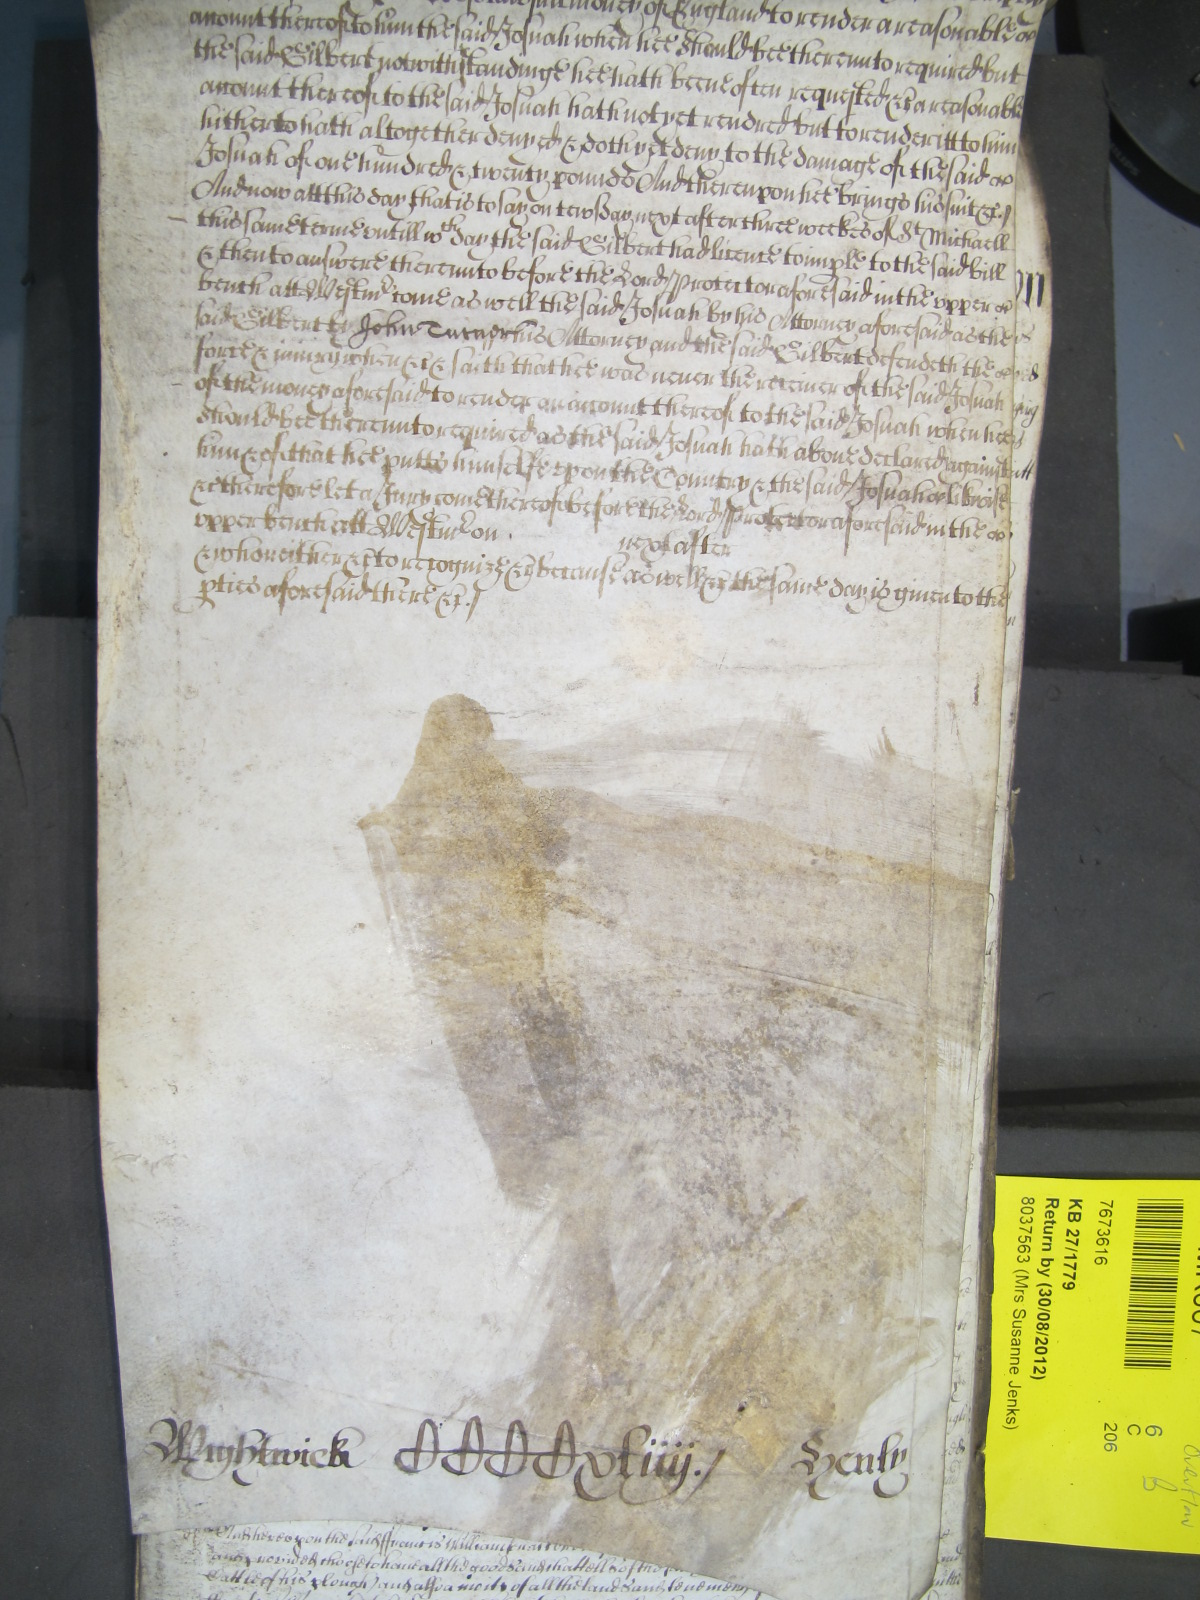 of England to render a reasonable
amount thereof to him the said Josuah when hee should bee thereunto required but
the said Gilbert notwithstandinge hee hath beene often requested &c a reasonable
amount thereof to the said Josuah hath not yet rendred but to render itt to him
hitherto hath altogether denyed & doth yet deny to the damage of the said
Josuah of one hundred & twenty pounds And thereupon hee brings his suit &c./
And now att this day that is to say on tewsday next after three weekes of St Michaell
this same terme untill wch day the said Gilbert had licence to imple to the said bill
& then to answere thereunto before the Lord Protector aforesaid in the upper
bench att Westmr come as well the said Josuah by his Attorney aforesaid as the
said Gilbert by John Turner his Attorney and the said Gilbert defendeth the
force & injury when &c & saith that hee was never the receiver of the said Josuah
of the money aforesaid to render an amount thereof to the said Josuah when hee
should bee thereunto required as the said Josuah hath above declared against
him & of that hee putts himselfe upon the Country & the said Josuah likwise
& therefore let a Jury come thereof before the Lord Protector aforesaid in the
upper bench att Westmr on next after
& who neither &c to recognize &c because as well &c the same day is given to the
pties aforesaid there &c./
Wightwick CCCCxliiij./ Henly
And hereupon the said Francis
and provided chooseth to have all the goods and chattells of the
Cattle of his plough and also a moity of all the lands and tenements
7673616
KB 27/1779
Return by (30/08/2012)
8037563 (Mrs Susanne Jenks)
6
C
206
Overflow
B